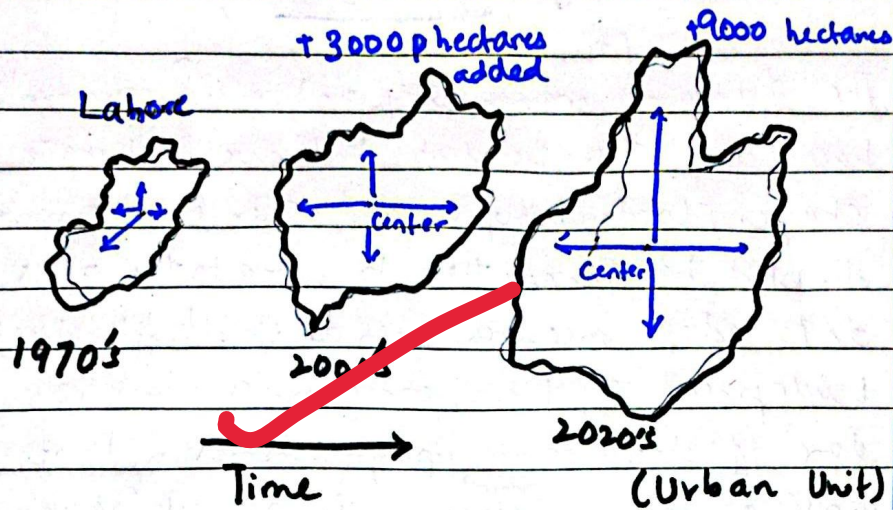 + 3000p hectares
added
+9000 hectares
Lahore
Center
Center
1970's
2000's
2020's
Time
(Urban Unit)